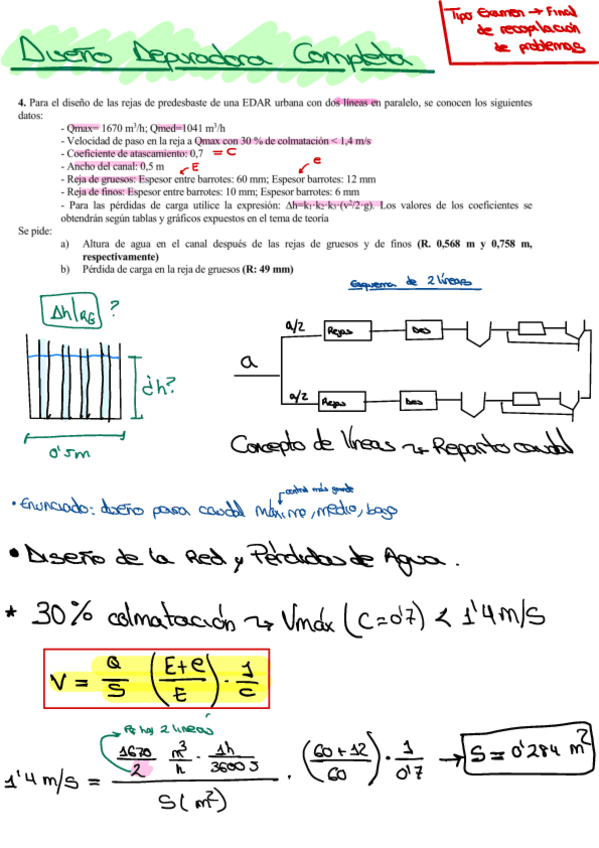 Tipo Examen → Final
de recopilación
de problemas
Diseño Depuradora Completa
4. Para el diseño de las rejas de predesbaste de una EDAR urbana con dos líneas en paralelo, se conocen los siguientes
datos:
- Qmax= 1670 m³/h; Qmed=1041 m³/h
- Velocidad de paso en la reja a Qmax con 30 % de colmatación < 1,4 m/s
- Coeficiente de atascamiento: 0,7 = C
- Ancho del canal: 0,5 m
E e
- Reja de gruesos: Espesor entre barrotes: 60 mm; Espesor barrotes: 12 mm
- Reja de finos: Espesor entre barrotes: 10 mm; Espesor barrotes: 6 mm
- Para las pérdidas de carga utilice la expresión: Δh=k₁·k₂·k₃·(v²/2·g). Los valores de los coeficientes se
obtendrán según tablas y gráficos expuestos en el tema de teoría
Se pide:
a) Altura de agua en el canal después de las rejas de gruesos y de finos (R. 0,568 m y 0,758 m,
respectivamente)
b) Pérdida de carga en la reja de gruesos (R: 49 mm)
Esquema de 2 líneas
Δh|RG ?
¿h?
0'5m
Q
Q/2 Rejas Des
Q/2 Rejas Des
Concepto de líneas → Reparto caudal
control más grande
• Enunciado: diseño para caudal máximo, medio, bajo
• Diseño de la Red y Pérdidas de Agua.
* 30% colmatación → Vmáx (C=0'7) < 1'4 m/s
V = Q/S (E+e/E) · 1/C
Pq hay 2 líneas
1'4 m/s = (1670/2 m³/h · 1h/3600s)/S(m²) · (60+12/60) · 1/0'7 → S = 0'284 m²